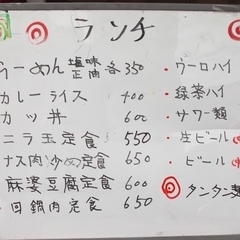 ランチ
らーめん 塩味 正油 各350
カレーライス 400
カツ丼 600
ニラ玉定食 550
ナス肉炒め定食 650
麻婆豆腐定食 600
回鍋肉定食 650
・ウーロハイ
・緑茶ハイ
・サワー類
・生ビール
・ビール
タンタン麺